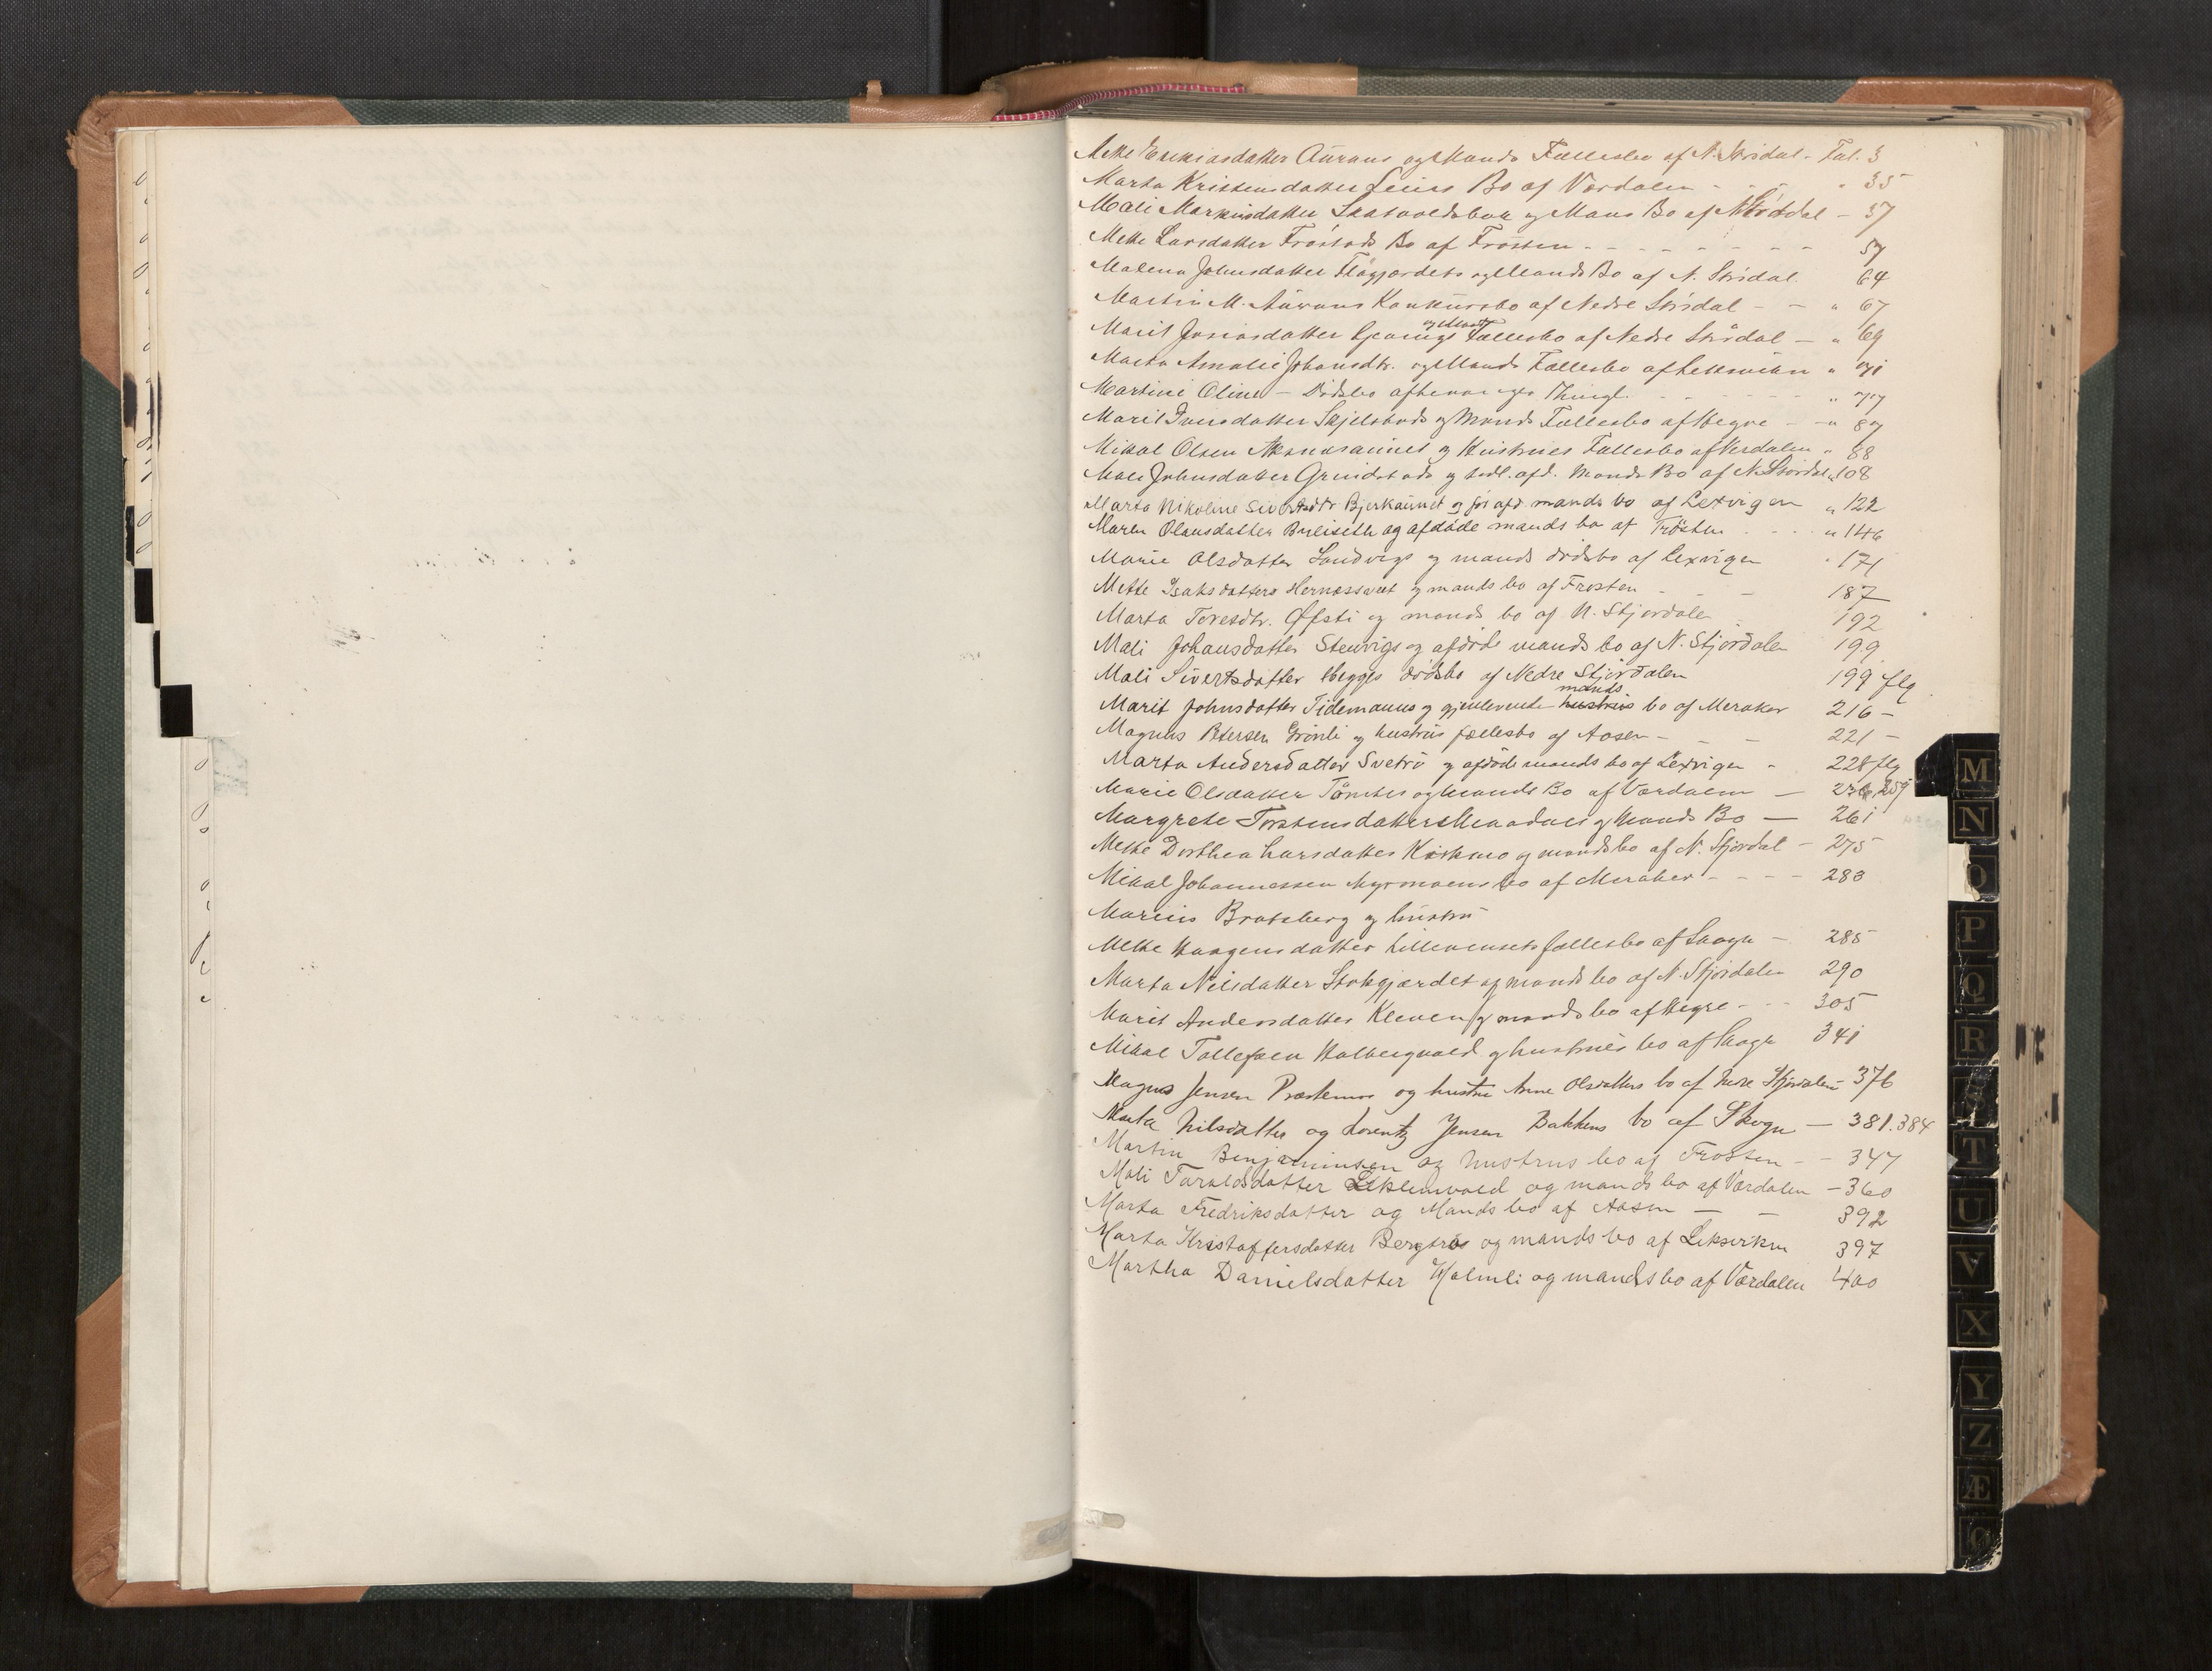 Mette Esekiasdatter Aurans og Mands Fællesbo af N. Strdal. Fol. 3
Marta Kristensdatter Leins Bo af Værdalen - - - " 35
Mali Markusdatter Skatvoldsbak og Mans Bo af N Strdal - 37
Mette Larsdatter Fröstads Bo af Frösten - - - - - - - 57
Malena Johnsdatter Flågjærdets og Mands Bo af N. Strdal. 64
Martin M. Aurans Konkursbo af Nedre Strdal - - " 67
Marit Josiasdatter og Mands Fællesbo af Nedre Strdal - " 69
Marta Amalie Johansdtr. og Mands Fællesbo af Leksviken " 71
Martine Oline - Dödsbo af Thingl. - - - - - " 77
Marit Iversdatter Skjelstads og Mands Fællesbo af Hegre - " 87
Mikal Olsen og Hustrues Fællesbo af Verdalen " 88
Mali Johnsdatter Grindstads og tidl. afd. Mands Bo af N. Stördal " 108
Marta Nikoline Sivertsdtr Bjerkaunet og før afd mands bo af Lexvigen " 122
Maren Olausdatter og afdöde mands bo af Frösten - - - " 146
Marie Olsdatter Sandvigs og mands dödsbo af Lexvigen " 171
Mette Isaksdatters og mands bo af Frosten - - - 187
Marta Toresdtr. Øfsti og mands bo af N. Stjordalen 192
Mali Johansdatter Stenvigs og afdöde mands bo af N. Stjördalen 199
Mali Sivertsdatter Hegges dödsbo af Nedre Stjördalen 199 flg
Marit Johnsdatter Tidemanns og gjenlevende hustrus mands bo af Meraker 216 -
Magnus Petersen Grönli og hustrus fællesbo af Aasen - - - 221 -
Marta Andersdatter Svetrö og afdöde mands bo af Lexvigen - 228 flg
Marie Olsdatter og Mands Bo af Værdalen - 236, 259
Margrete Torstensdatter og Mands Bo - 261
Mette Dorthea Larsdatter Kirkmo og mands bo af N. Stjordal - 275
Mikal Johannessen Myrmoens bo af Meraker - - - - 283
Marius Bratsberg og hustru
Mette Haagensdatter fællesbo af Skogn - 285
Marta Nilsdatter Stokgjærdet og mands bo af N. Stjördalen 290
Marit Andersdatter Kleven og mands bo af Hegre - - - 305
Mikal Tollefsen Halbergvald og hustrues bo af Skogn 341
Magnus Jensen Præstemo og hustru Anne Olsdatters bo af Nedre Stjordalen - 376
Marta Nilsdatter og Lorentz Jensen Bakkens bo af Skogn - 381.384
Martin Benjaminsen og hustrus bo af Frosten - - 347
Mali Taraldsdatter Leklemvald og mands bo af Værdalen - 360
Marta Fredriksdatter og Mands bo af Aasen - - 392
Marta Kristoffersdatter Bergtrös og mands bo af Leksviken 397
Martha Danielsdatter Halmli og mands bo af Værdalen 400
M
N
O
P
Q
R
S
T
U
V
X
Y
Z
Æ
Ø